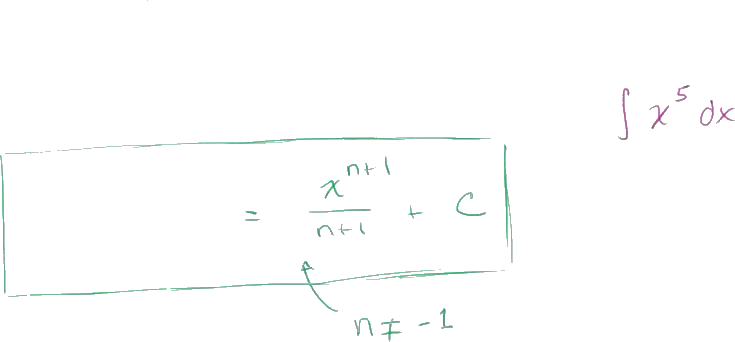 ∫ x⁵ dx
= xⁿ⁺¹/n+1 + C
n ≠ -1